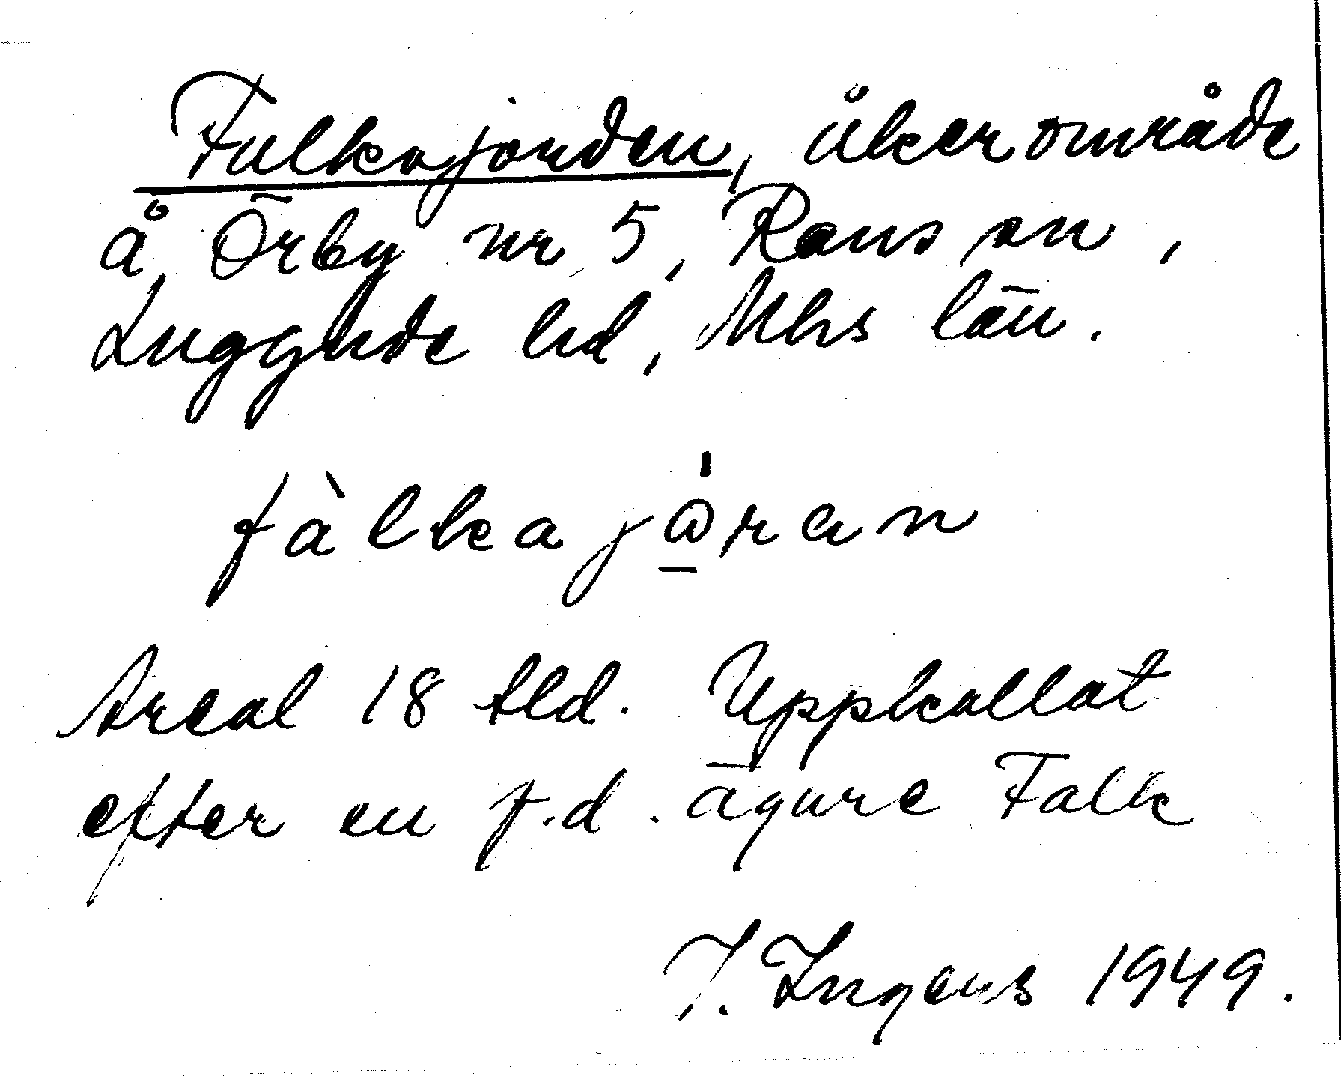 Falkajorden, åkerområde
å Örby nr 5, Raus sn,
Luggude hd, Mhs län.
fàlkajåran
Areal 18 tld. Uppkallat
efter en f.d. ägare Falk
I. Ingers 1949.